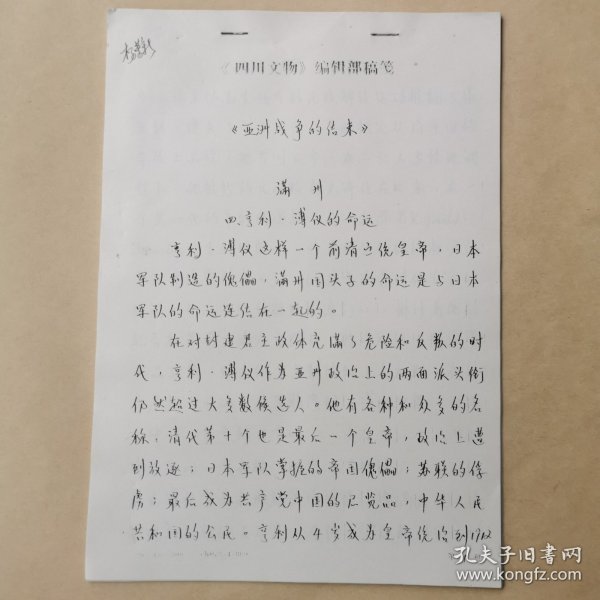 《四川文物》编辑部稿笺
《亚洲战争的结束》
满州
四、亨利·溥仪的命运
亨利·溥仪这样一个前清正统皇帝，日本
军队制造的傀儡，满州国头子的命运是与日本
军队的命运连结在一起的。
在对封建君主政体充满了危险和反叛的时
代，亨利·溥仪作为亚州政治上的两面派头衔
仍然超过大多数候选人。他有各种和众多的名
称，清代第十个也是最后一个皇帝，政治上遭
到放逐；日本军队掌握的帝国傀儡；苏联的俘
虏；最后成为共产党中国的展览品，中华人民
共和国的公民。亨利从4岁成为皇帝统治到1912
孔夫子旧书网
www.kongfz.com